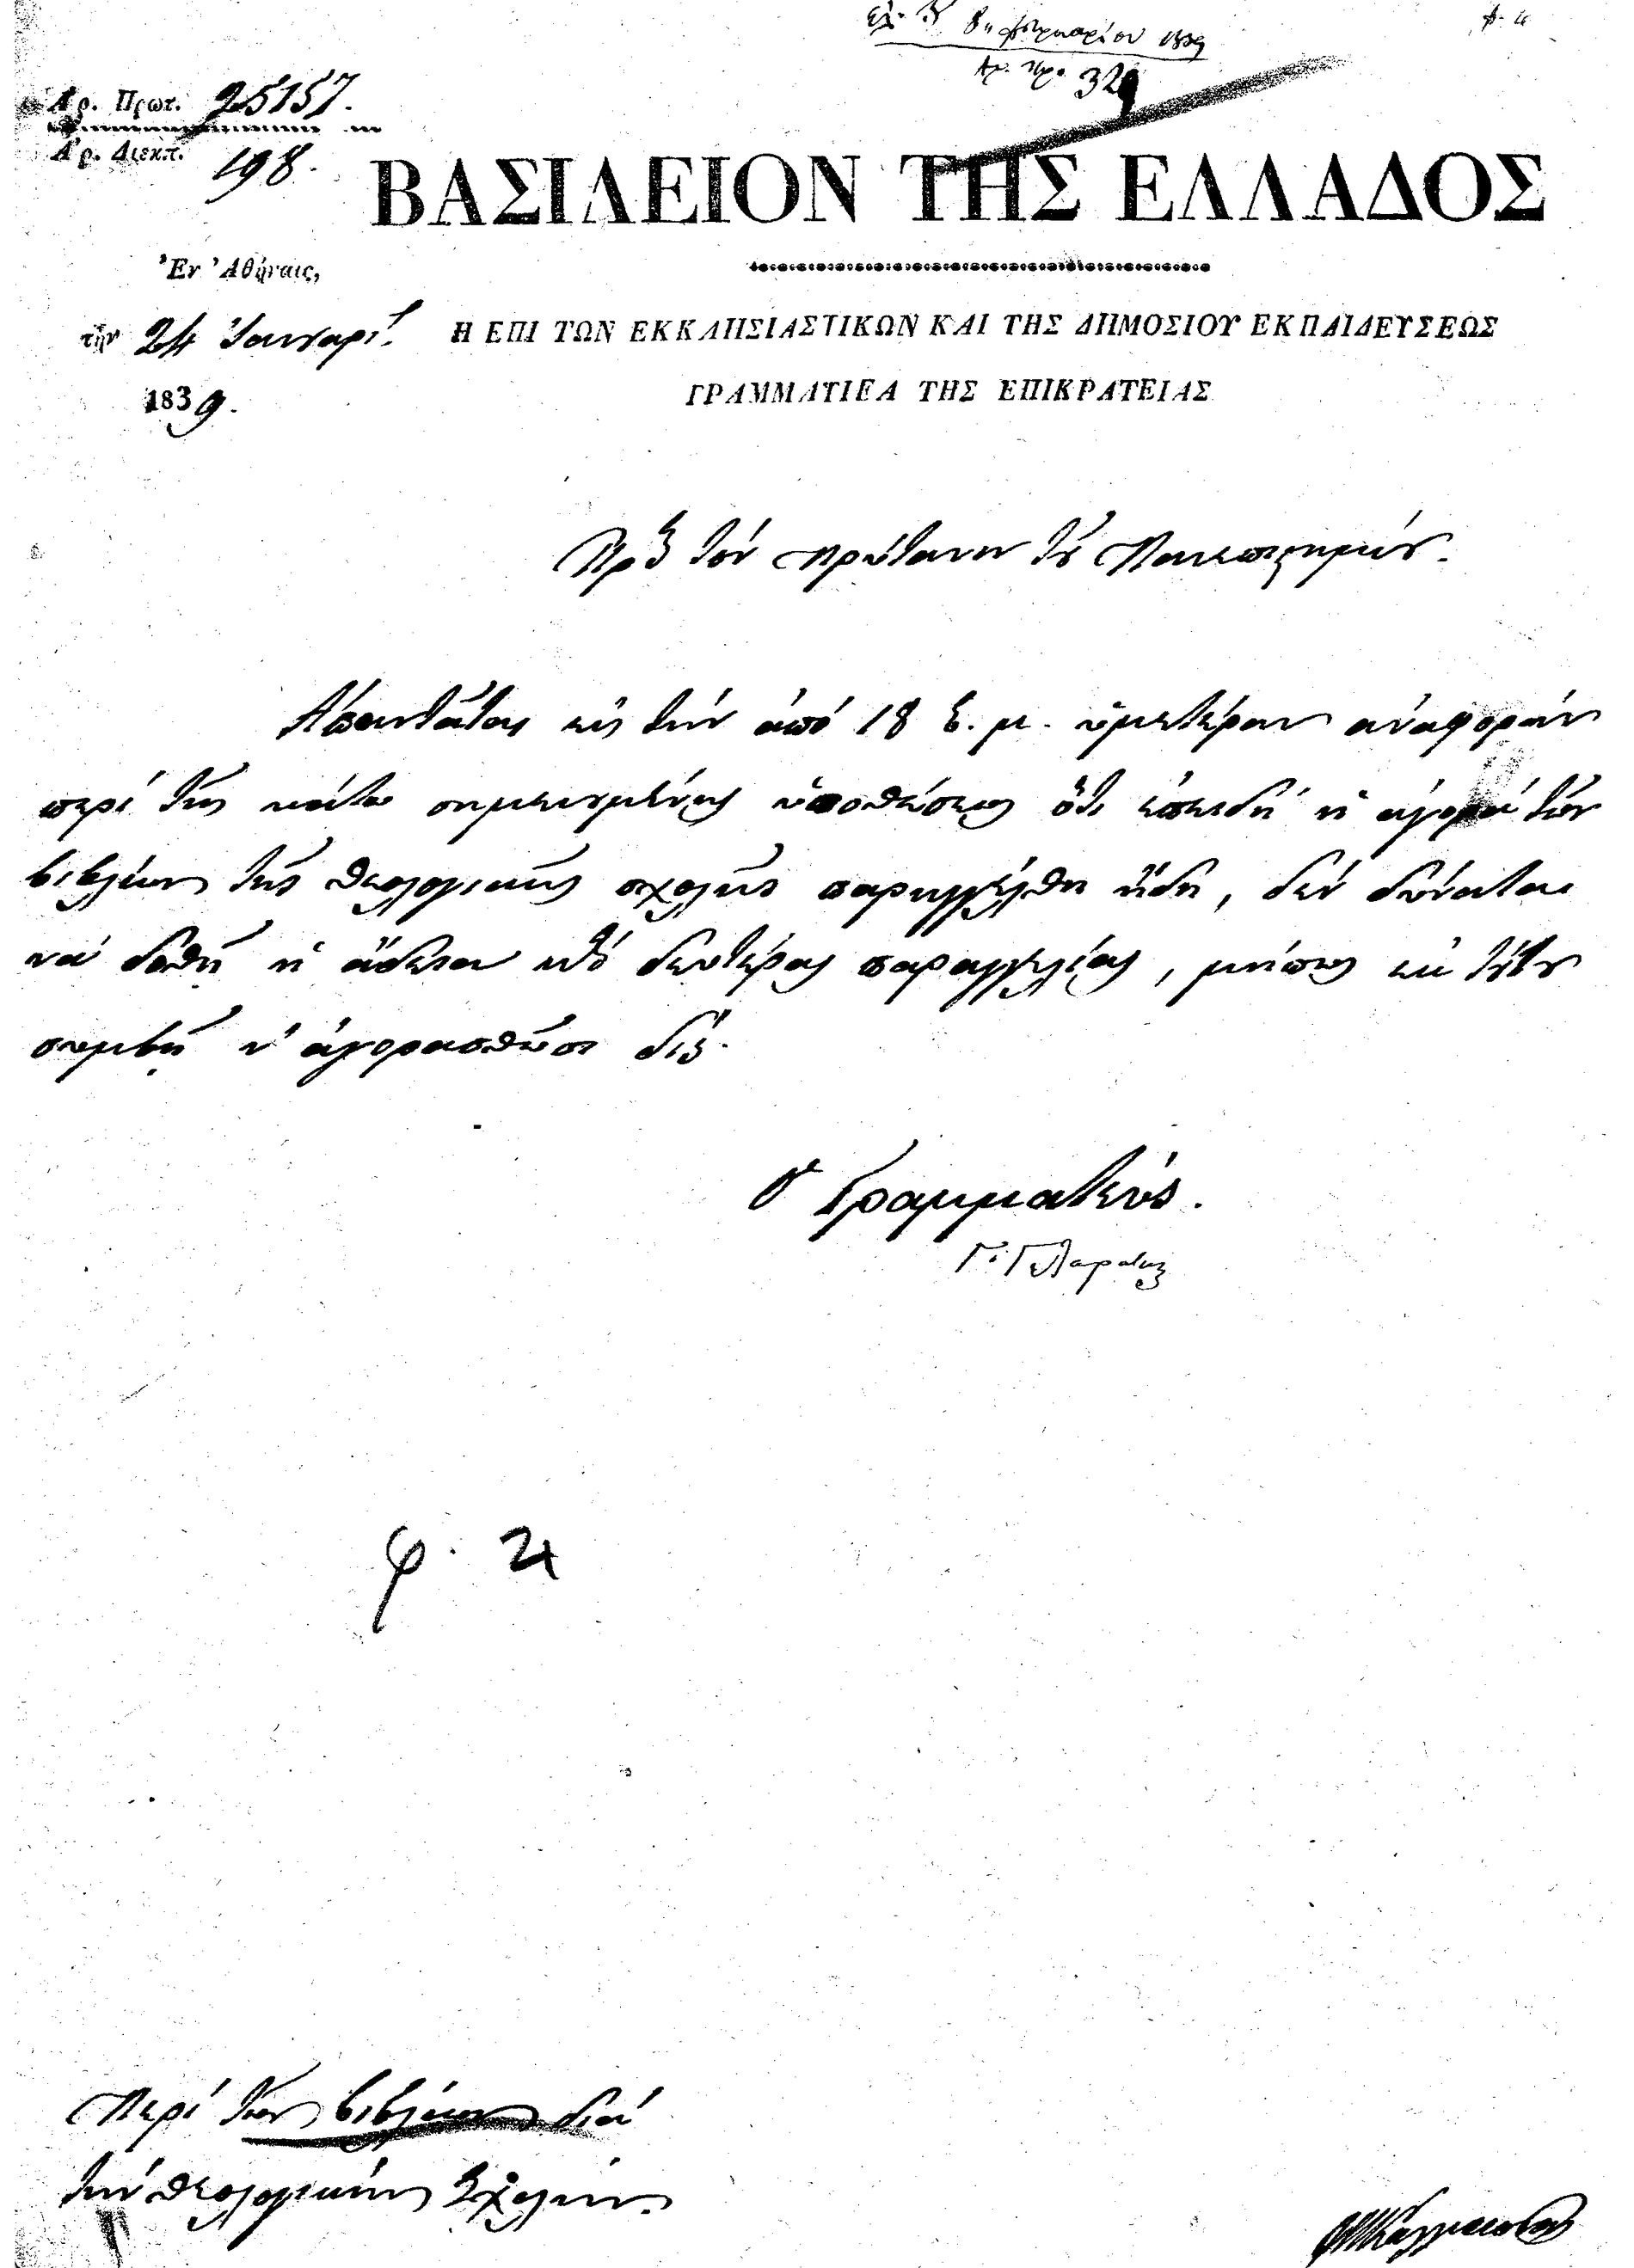 8 Φεβρουαρίου 1839
Αρ. Πρω. 329
φ. 4
Αρ. Πρωτ. 25157.
Αρ. Διεκπ. 198.
ΒΑΣΙΛΕΙΟΝ ΤΗΣ ΕΛΛΑΔΟΣ
Ἐν Ἀθήναις,
τὴν 24 Ἰανουαρί.
1839.
Η ΕΠΙ ΤΩΝ ΕΚΚΛΗΣΙΑΣΤΙΚΩΝ ΚΑΙ ΤΗΣ ΔΗΜΟΣΙΟΥ ΕΚΠΑΙΔΕΥΣΕΩΣ
ΓΡΑΜΜΑΤΙΕΑ ΤΗΣ ΕΠΙΚΡΑΤΕΙΑΣ
Πρὸς τὸν Πρύτανιν τȣ Πανεπιστημίȣ.
Ἀπαντᾶται εἰς τὴν ἀπὸ 18 τ. μ. ὑμετέραν ἀναφορὰν
περὶ τῆς κάτω σημειωμένης ὑποθέσεως ὅτι ἐπειδὴ ἡ ἀγορὰ τῶν
βιβλίων τῆς θεολογικῆς σχολῆς παρηγγέλθη ἤδη, δὲν δύναται
νὰ δοθῇ ἡ ἄδεια δευτέρας παραγγελίας, μήπως ἐκ τȣτȣ
συμβῇ ν' ἀγορασθῶσι δίς.
Ὁ Γραμματεύς.
Γ. Γλαράκης
φ. 4
Περὶ τῶν βιβλίων διὰ
τὴν θεολογικὴν Σχολήν.